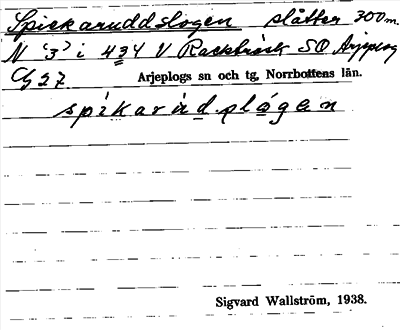 Spickaruddslogen slåtter 300 m.
N "3" i 434 V Rackträsk SO Arjeplog
Cg 27 Arjeplogs sn och tg, Norrbottens län.
Sigvard Wallström, 1938.